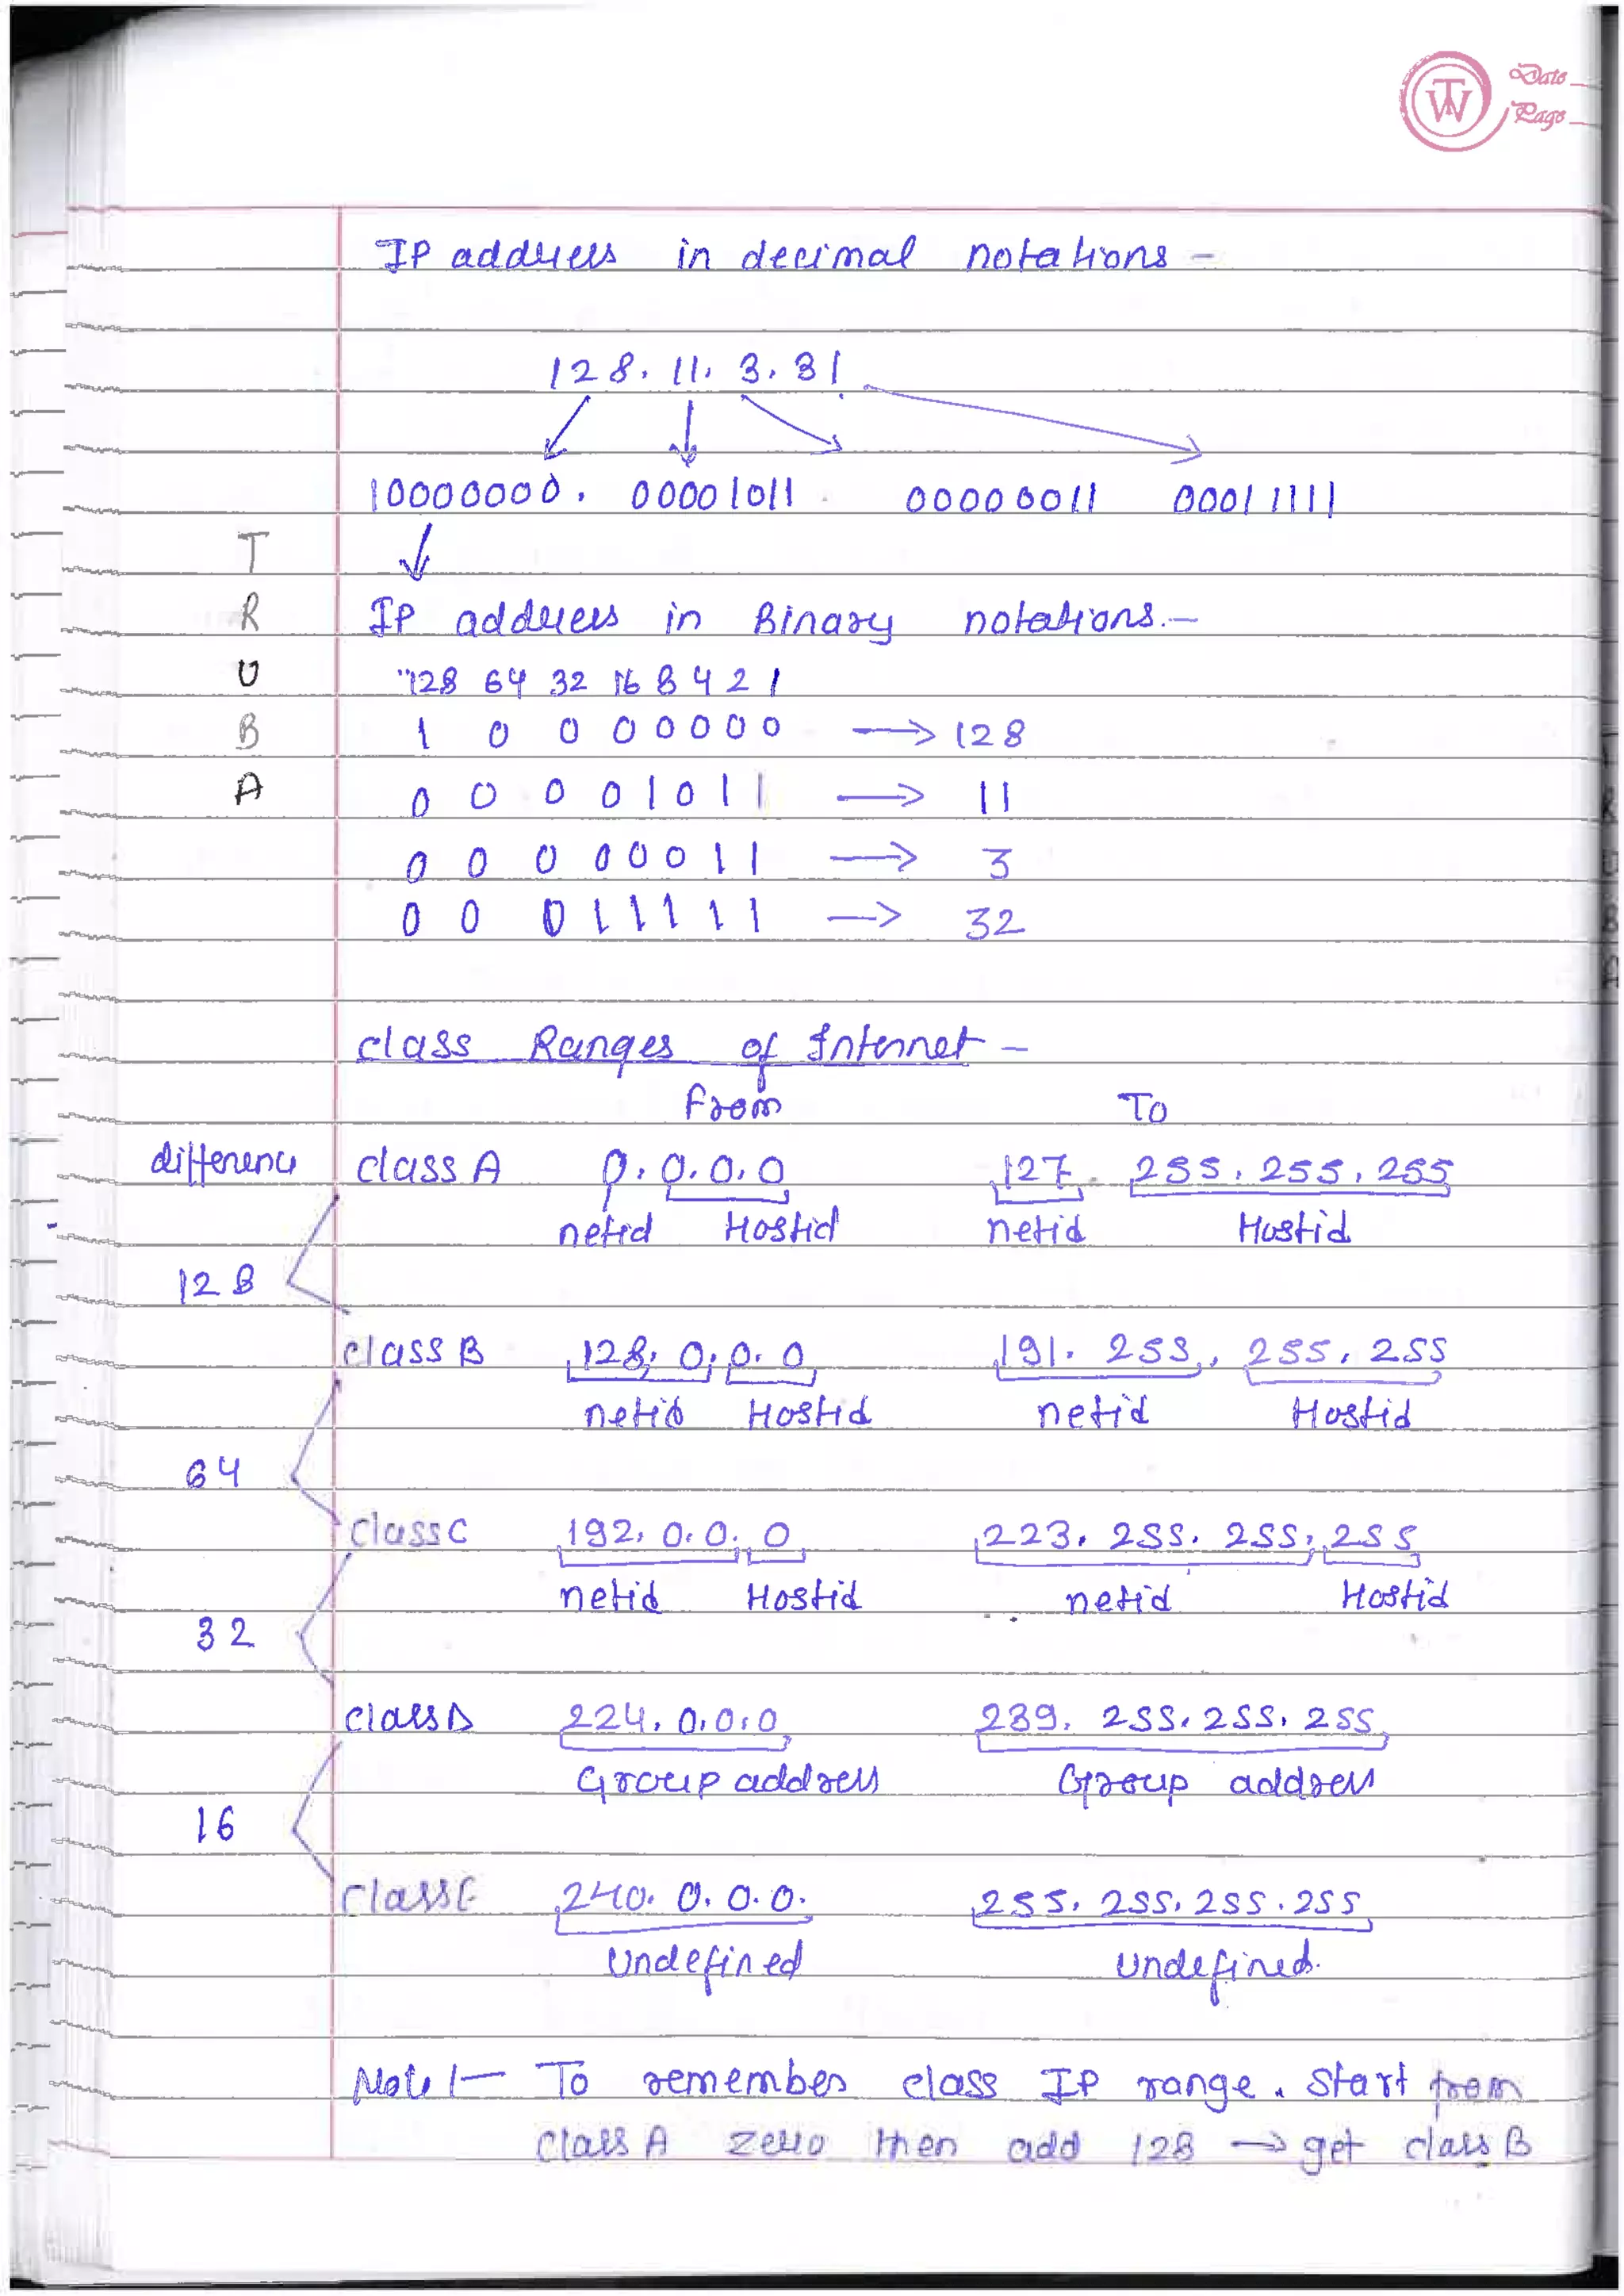 TW Date
Page
IP address in decimal notations -
128. 11. 3. 31
10000000. 00001011 . 00000011 00011111
T
R
U
B
A
IP address in Binary notations.-
128 64 32 16 8 4 2 1
1 0 0 0 0 0 0 0 → 128
0 0 0 0 1 0 1 1 → 11
0 0 0 0 0 0 1 1 → 3
0 0 0 1 1 1 1 1 → 32
class Ranges of Internet -
From To
difference class A 0. 0. 0. 0 127. 255. 255. 255
netid Hostid netid Hostid
128
class B 128. 0. 0. 0 191. 255. 255. 255
netid Hostid netid Hostid
64
class C 192. 0. 0. 0 223. 255. 255. 255
netid Hostid netid Hostid
32
class D 224. 0. 0. 0 239. 255. 255. 255
Group address Group address
16
class E 240. 0. 0. 0. 255. 255. 255. 255
Undefined Undefined.
Note 1- To remember class IP range. Start from
class A zero then add 128 → get class B